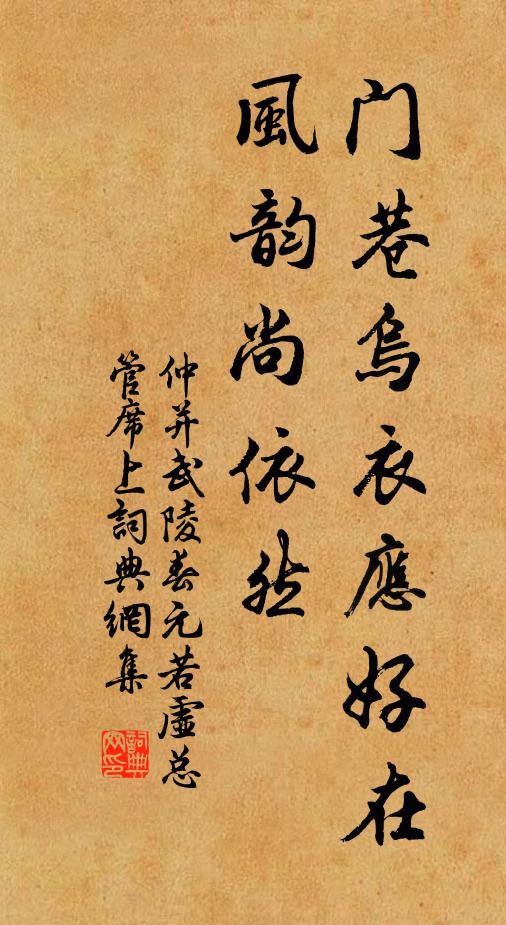 门巷烏衣應好在
風韵尚依然
仲并武陵春元若虛总
管席上詞典網集
詞典網印